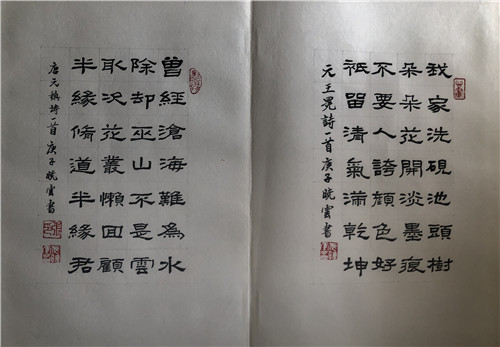 我家洗硯池頭樹
朵朵花開淡墨痕
不要人誇顏色好
祗留清氣滿乾坤
元王冕詩一首庚子晓雲書
曾經滄海難為水
除却巫山不是雲
取次花叢懶回顧
半緣脩道半緣君
唐元稹詩一首庚子晓雲書